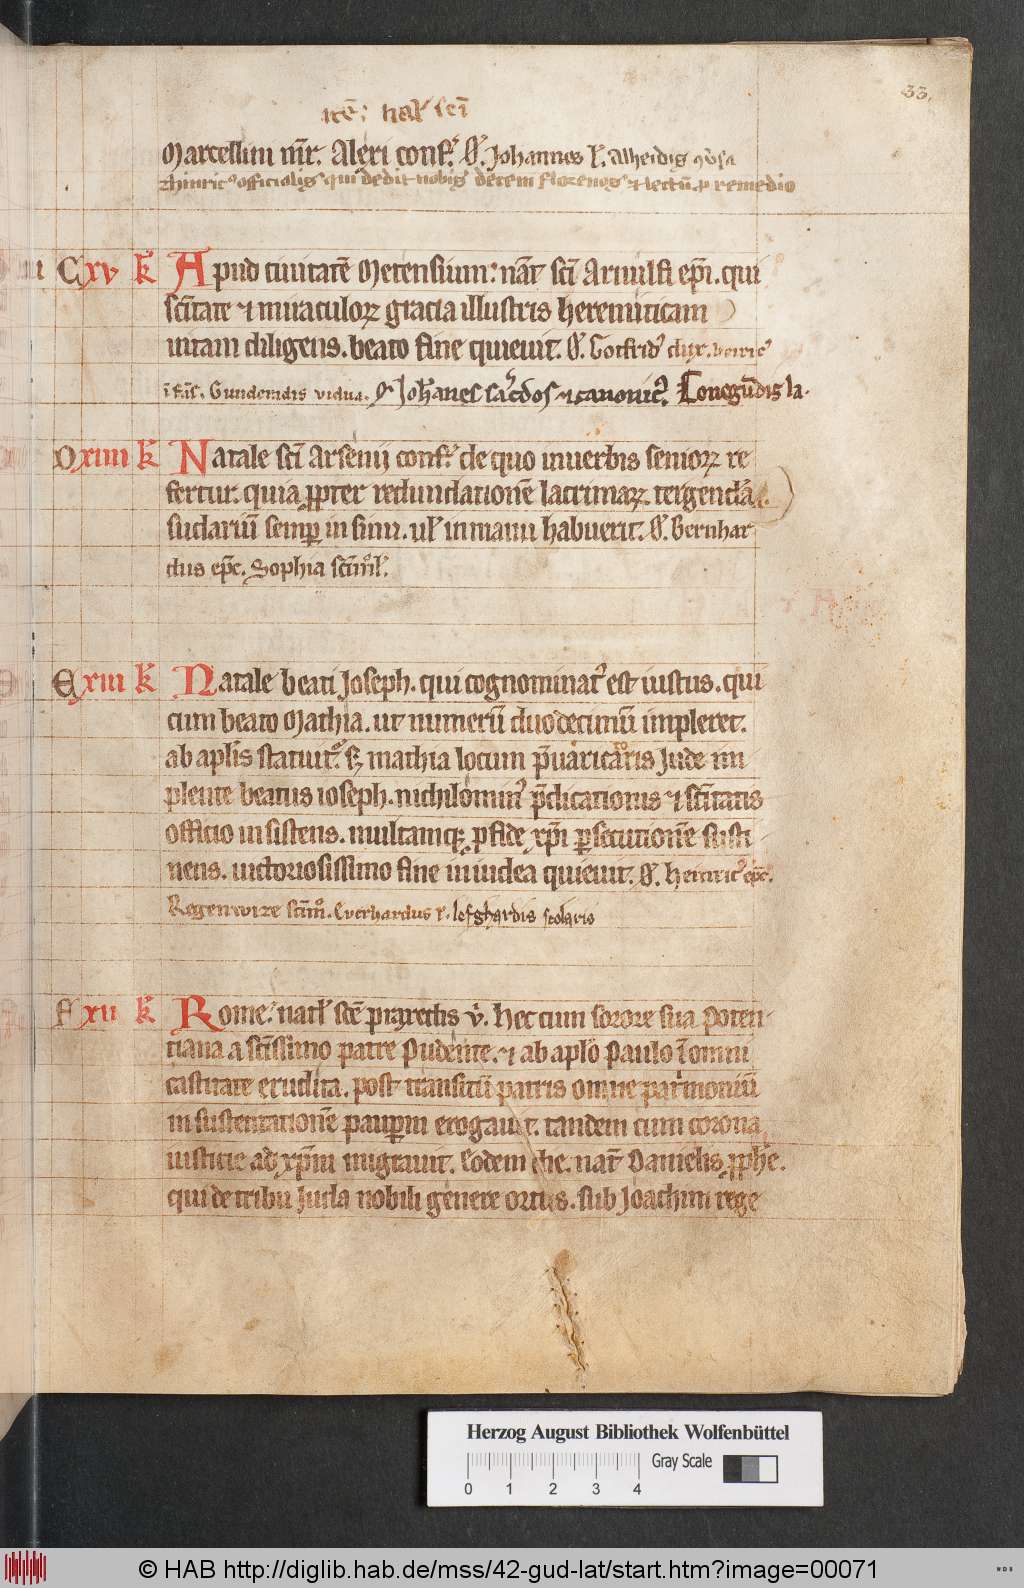 33.
itē: nat̄ sci
Marcellini mr̄. Alexi conf. O. Johannes l. Alheidis
hinric officialis qui dedit nobis decem florenos et lectū p remedio
C xv k Apud ciuitatē Metensium: nat̄ sci Arnulfi epī. qui
scītate et miraculoꝝ gracia illustris heremiticam
uitam diligens. beato fine quieuit. O. Gotfrid dux. heinric
Gunderadis vidua. O Johānes sacdos et canonic. Conegūdis la.
D xiiii k Natale sci Arsenij conf. de quo in uerbis senioꝝ re
fertur. quia ꝓpter redundationē lacrimaꝝ. tergenda
sudariū semꝑ in sinu. ul in manu habuerit. O. Bernhar
dus epc. Sophia
E xiii k Natale beati Joseph. qui cognominat est iustus. qui
cum beato Mathia. ut numerū duodecimū impleret.
ab aplis statuit. sꝫ mathia locum p̄uaricatoris Jude im
plente beatus ioseph. nichilomin p̄dicationis et scītatis
officio insistens. multamqꝫ p fide xp̄i ꝑsecutionē susti
nens. uictoriosissimo fine in iudea quieuit. O. Heinric epc.
Regenwize Everhardus l. lefghardis scolaris
F xii k Rome: natl scē praxedis v. hec cum sorore sua Poten
tiana a scīssimo patre Pudente. et ab aplo Paulo ī omni
castitate erudita. post transitū patris omne patrimoniū
in sustentationē pauꝑum erogauit. tandem cum corona
iusticie ad xp̄m migrauit. Eodem die. nat̄ Danielis ꝓphe.
qui de tribu Juda nobili genere ortus. sub Joachim rege
Herzog August Bibliothek Wolfenbüttel
Gray Scale
0 1 2 3 4
© HAB http://diglib.hab.de/mss/42-gud-lat/start.htm?image=00071